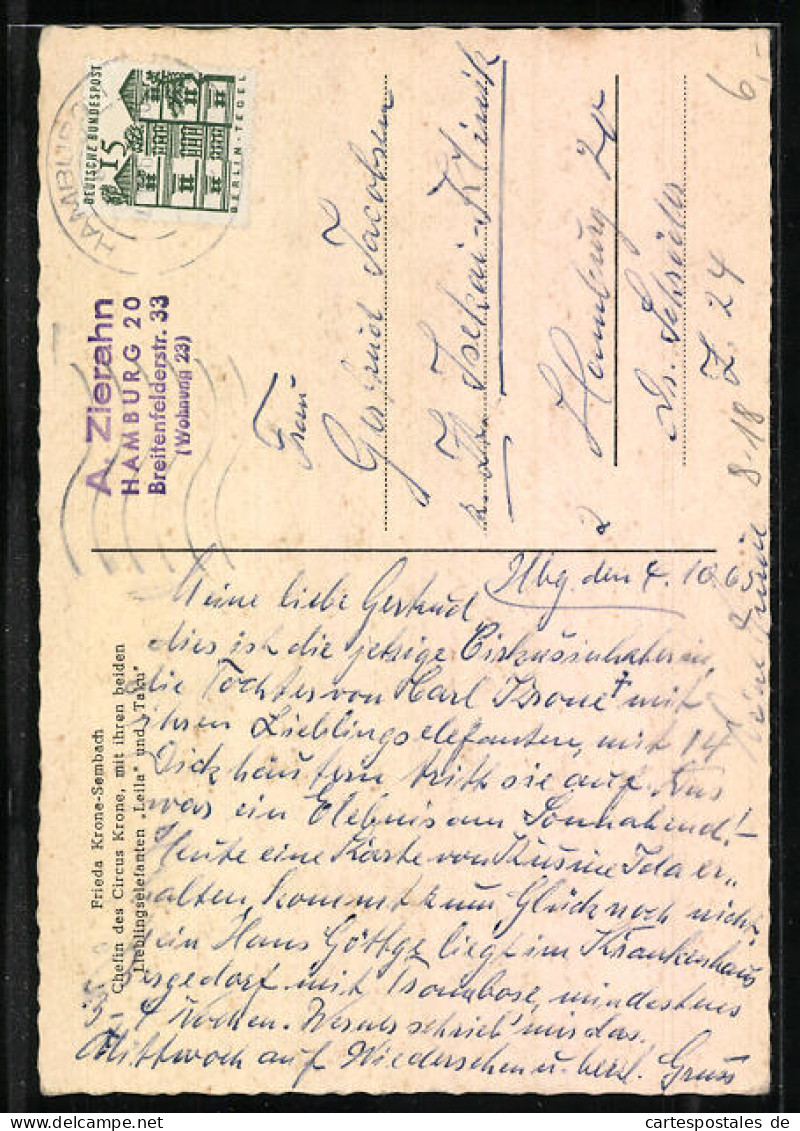 Frieda Krone-Sembach
Chefin des Circus Krone, mit ihren beiden
Lieblingselefanten „Leila" und „Taku"
Hbg. den 4. 10. 6
Meine liebe Gertrud
dies ist die jetzige Cirkusinhaberin,
die Tochter von Karl Krone † mit
ihren Lieblingselefanten, mit 14
Dickhäutern tritt sie auf. Aus
was ein Elebnis am Sonnabend!-
Heute eine Karte von Kusine Ida er„
halten, kommt zum Glück noch nicht,
ein Hans liegt im Krankenhaus
Bergedorf mit Trombose, mindestens
3-4 Wochen. Werner schrieb mir das.
Mittwoch auf Wiedersehen u. herzl. Gruss
A. Zierahn
HAMBURG 20
Breitenfelderstr. 33
(Wohnung 23)
HAMBURG
DEUTSCHE BUNDESPOST
15
BERLIN-TEGEL
Frau
Gertrud Jacobsen
z. Zt. Klinik
2 Hamburg 20
Dr. Schröder
Z. 24
8-18
6,-
www.cartespostales.de
cartespostales.de